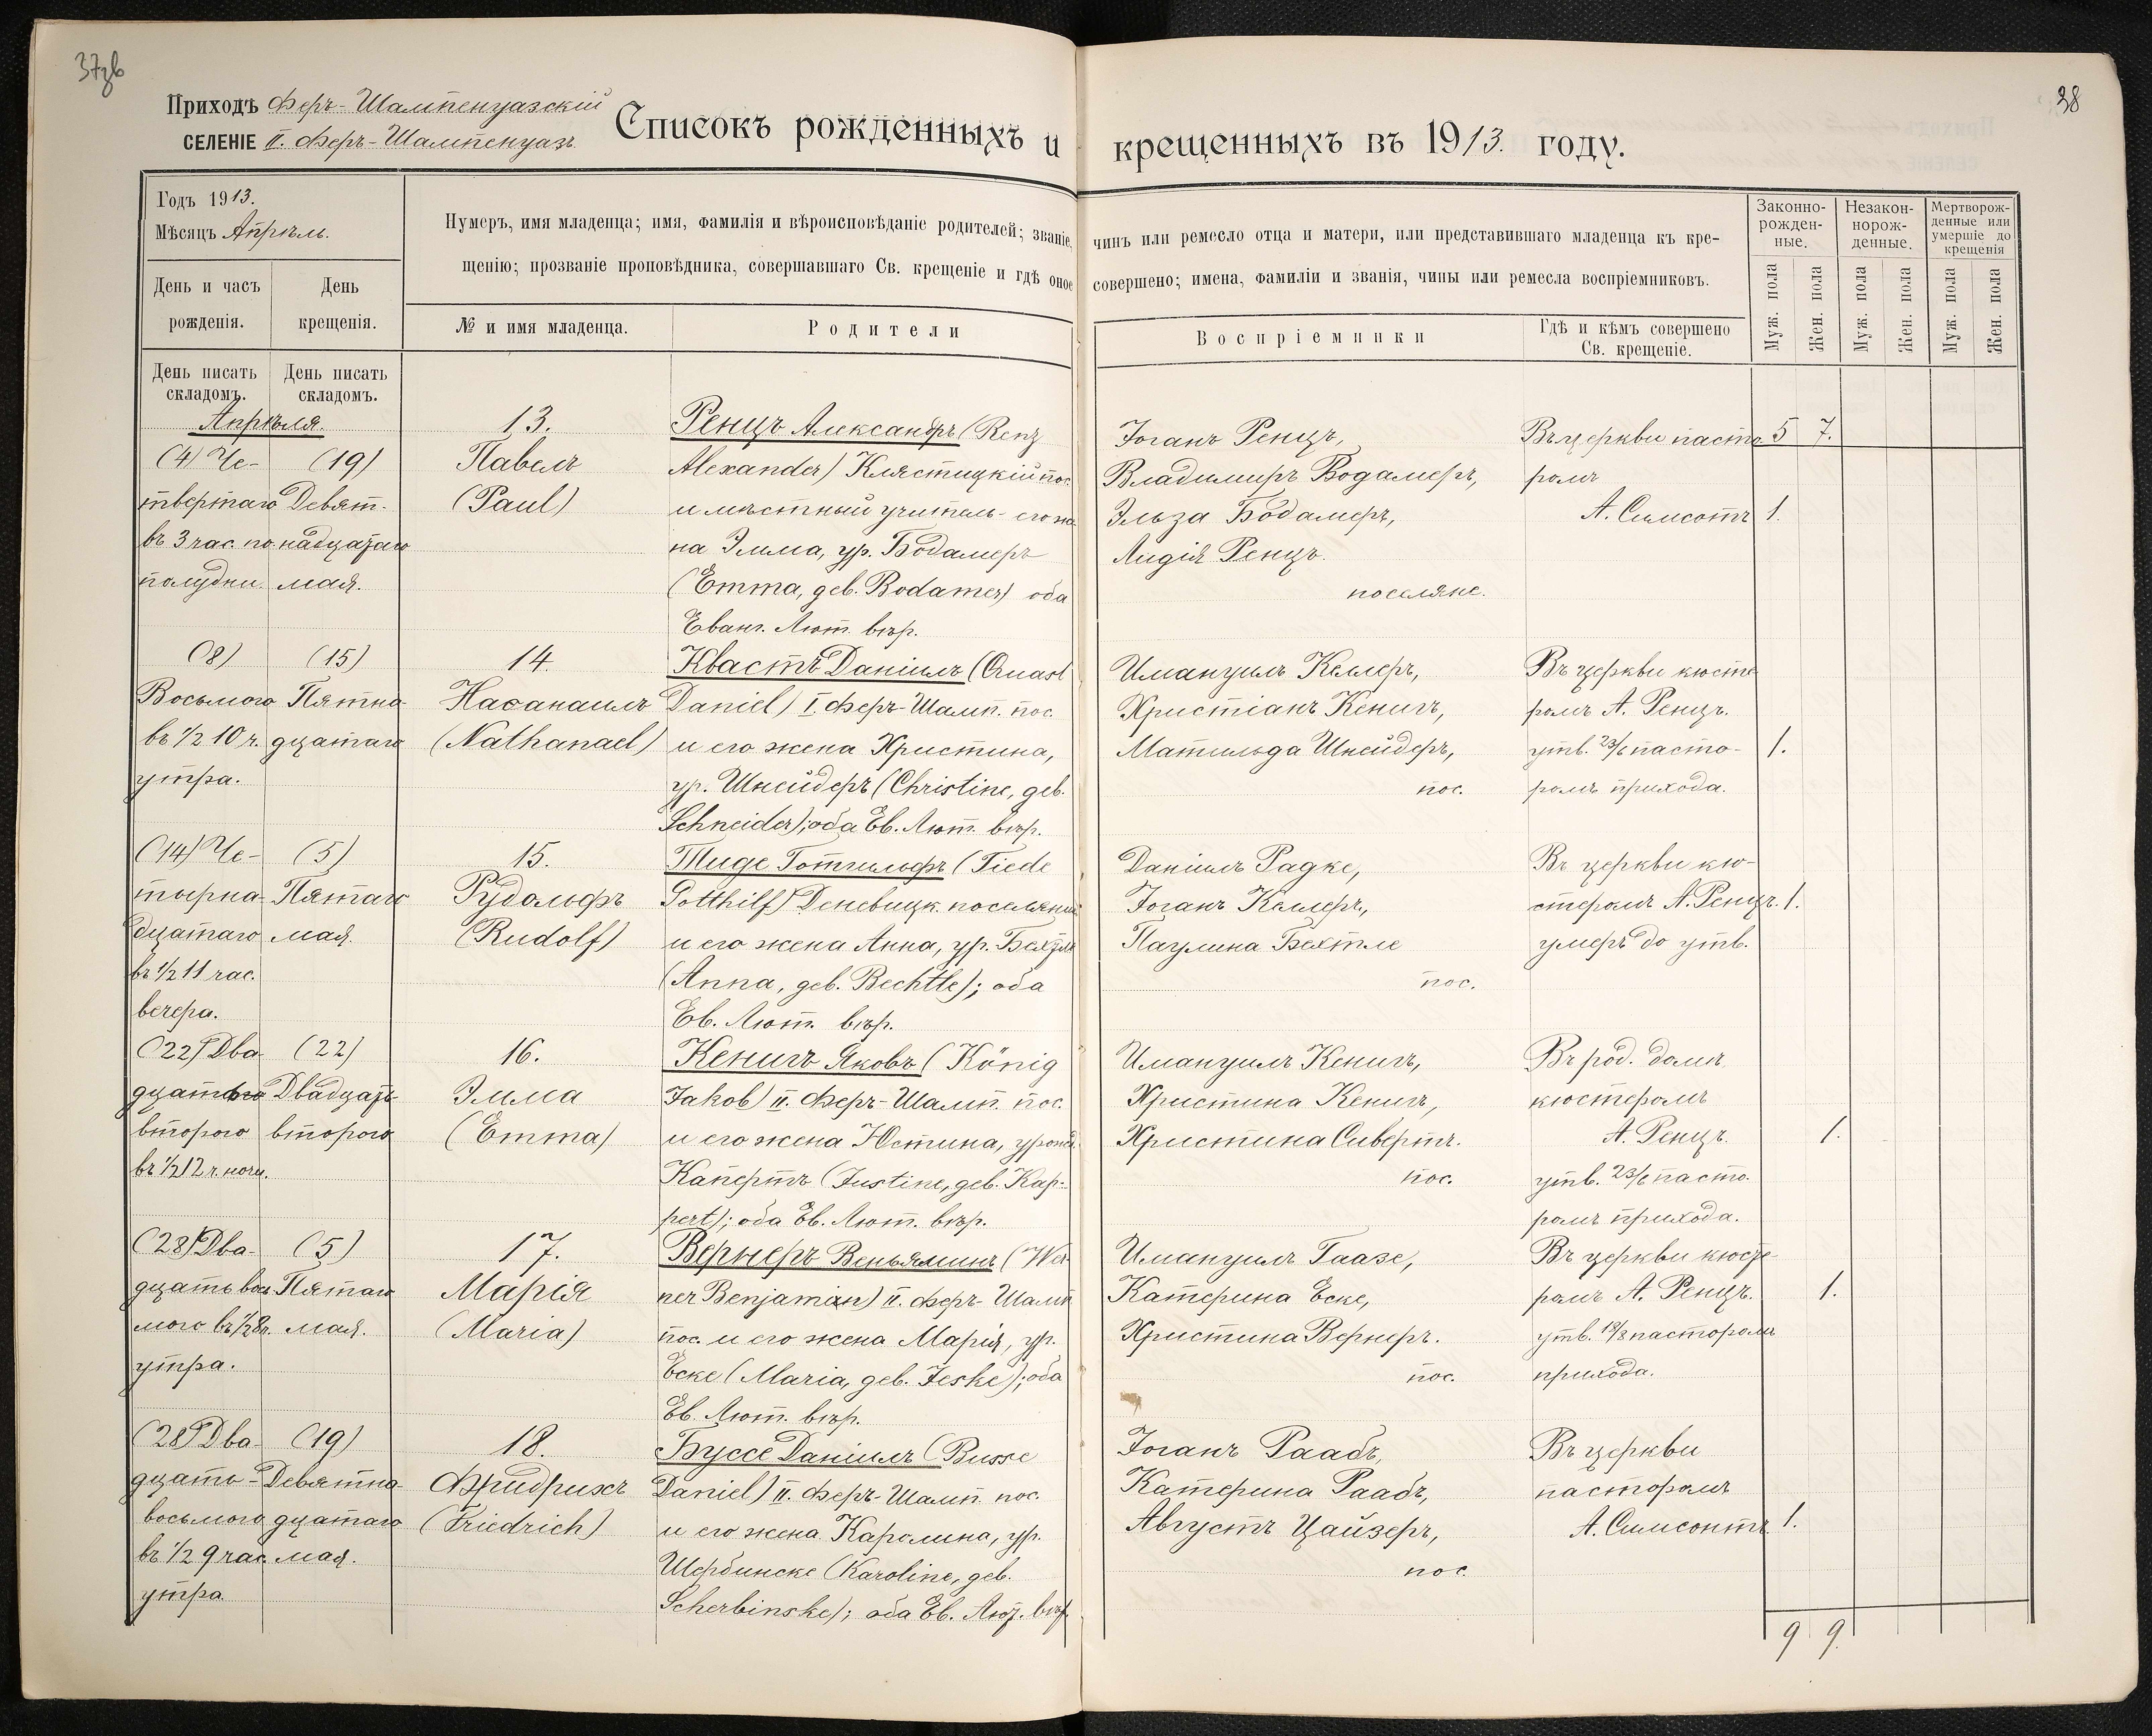 37об
38
Приходъ Феръ-Шампенуазскій
СЕЛЕНІЕ II. Феръ-Шампенуазъ
Списокъ рожденныхъ и крещенныхъ въ 1913. году.
Годъ 1913.
Мѣсяцъ Апрѣль.
Нумеръ, имя младенца; имя, фамилія и вѣроисповѣданіе родителей; званіе, чинъ или ремесло отца и матери, или представившаго младенца къ кре-
щенію; прозваніе проповѣдника, совершавшаго Св. крещеніе и гдѣ оное совершено; имена, фамиліи и званія, чины или ремесла воспріемниковъ.
Законно-
рожден-
ные.
Незакон-
норож-
денные.
Мертворож-
денные или
умершіе до
крещенія
День и часъ
рожденія.
День
крещенія.
№ и имя младенца.
Родители
Воспріемники
Гдѣ и кѣмъ совершено
Св. крещеніе.
Муж. пола
Жен. пола
Муж. пола
Жен. пола
Муж. пола
Жен. пола
День писать
складомъ.
День писать
складомъ.
Апрѣля.
(4) Че-
твертаго
въ 3 час. по-
полудни.
(19)
Девят-
надцатаго
мая.
13.
Павелъ
(Paul)
Ренцъ Александръ (Renz
Alexander) Клястицкій пос.
и мѣстный учитель - его же-
на Эмма, ур. Бодамеръ
(Emma, geb. Bodamer) оба
Еванг. Лют. вѣр.
Іоганъ Ренцъ,
Владимиръ Бодамеръ,
Эльза Бодамеръ,
Лидія Ренцъ.
поселяне.
Въ церкви пасто-
ромъ
А. Симсонъ
5 7.
1.
(8)
Восьмого
въ 1/2 10 ч.
утра.
(15)
Пятна-
дцатаго
14
Наѳанаилъ
(Nathanael)
Квастъ Даніилъ (Quast
Daniel) I. Феръ-Шамп. пос.
и его жена Христина,
ур. Шнейдеръ (Christine, geb.
Schneider); оба Ев. Лют. вѣр.
Имануилъ Келлеръ,
Христіанъ Кенигъ,
Матильда Шнейдеръ,
пос.
Въ церкви кюсте-
ромъ А. Ренцъ.
утв. 23/6 пасто-
ромъ прихода.
1.
(14) Че-
тырна-
дцатаго
въ 1/2 11 час.
вечера.
(5)
Пятаго
мая.
15.
Рудольфъ
(Rudolf)
Тиде Готгильфъ (Tiede
Gotthilf) Деневицк. поселянинъ
и его жена Анна, ур. Бехтле
(Anna, geb. Bechtle); оба
Ев. Лют. вѣр.
Даніилъ Радке,
Іоганъ Келлеръ,
Паулина Бехтле
пос.
Въ церкви кю-
стеромъ А. Ренцъ.
умеръ до утв.
1.
(22) Два-
дцать
второго
въ 1/2 12 ч. ночи.
(22)
Двадцать
второго
16.
Эмма
(Emma)
Кенигъ Яковъ (König
Jakob) II. Феръ-Шамп. пос.
и его жена Юстина, урожд.
Капертъ (Justine, geb. Kap-
pert); оба Ев. Лют. вѣр.
Имануилъ Кенигъ,
Христина Кенигъ,
Христина Сивертъ.
пос.
Въ род. домѣ
кюстеромъ
А. Ренцъ.
утв. 23/6 пасто-
ромъ прихода.
1.
(28) Два-
дцать вось-
мого въ 1/2 8 ч.
утра.
(5)
Пятаго
мая.
17.
Марія
(Maria)
Вернеръ Веньяминъ (Wer-
ner Benjamin) II. Феръ-Шамп.
пос. и его жена Марія, ур.
Еске (Maria, geb. Jeske); оба
Ев. Лют. вѣр.
Имануилъ Гаазе,
Катерина Еске,
Христина Вернеръ.
пос.
Въ церкви кюсте-
ромъ А. Ренцъ.
утв. 19/5 пасторомъ
прихода.
1.
(28) Два-
дцать-
восьмого
въ 1/2 9 час.
утра.
(19)
Девятна-
дцатаго
мая.
18.
Фридрихъ
(Friedrich)
Буссе Даніилъ (Busse
Daniel) II. Феръ-Шамп. пос.
и его жена Каролина, ур.
Шербинске (Karoline, geb.
Scherbinske); оба Ев. Лют. вѣр.
Іоганъ Раабъ,
Катерина Раабъ,
Августъ Цайзеръ,
пос.
Въ церкви
пасторомъ
А. Симсонъ
1.
9 9.